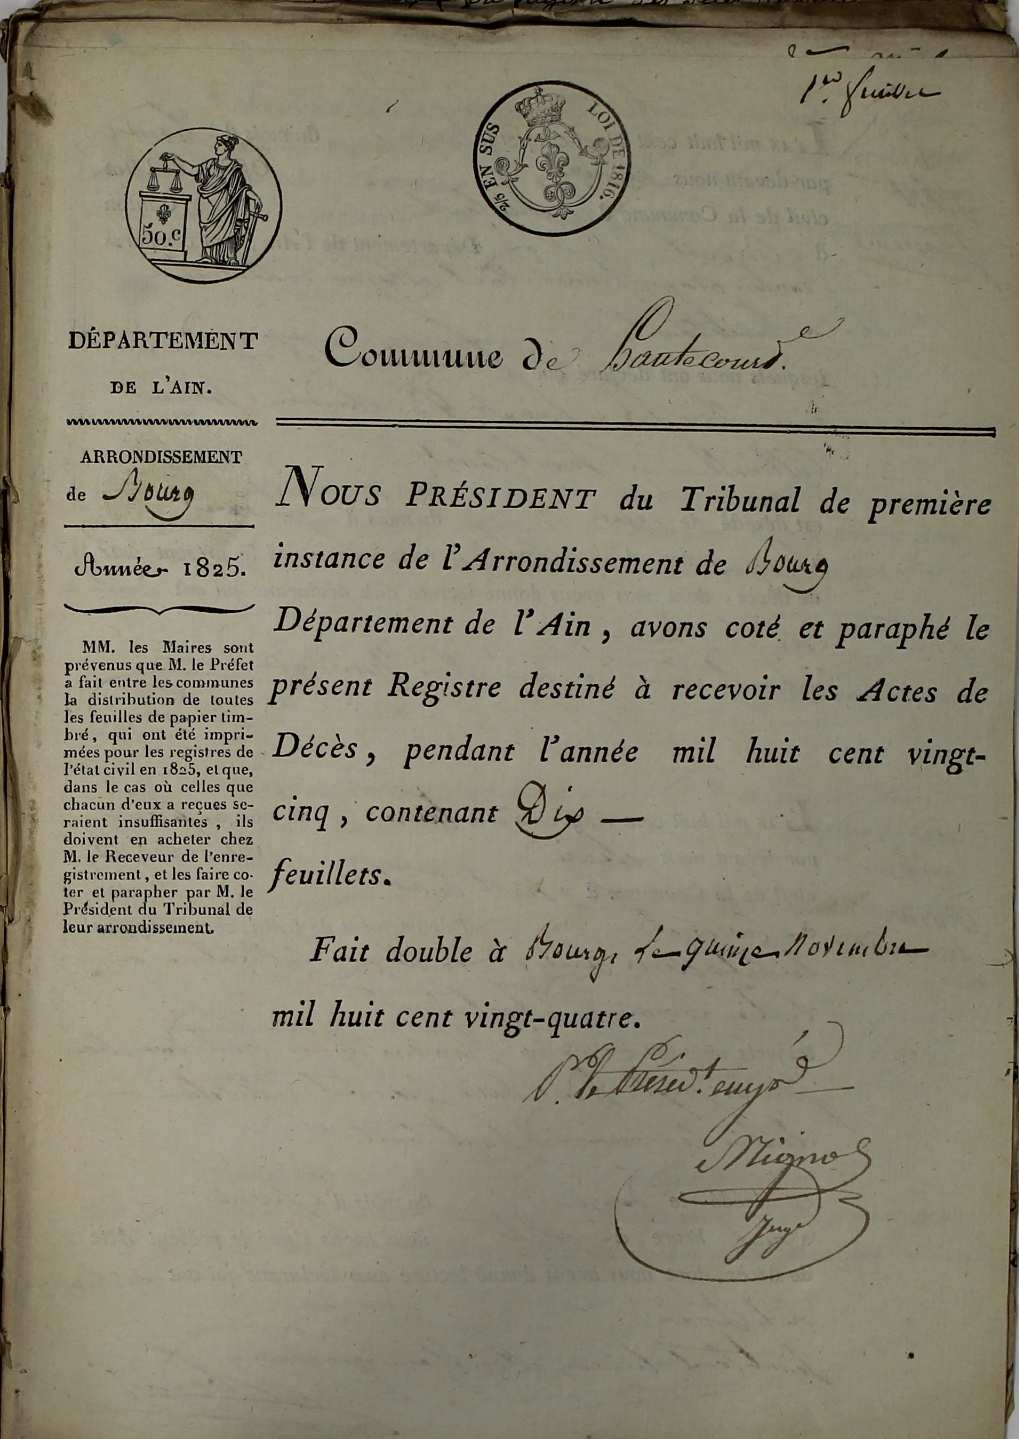 1er feuillet
2/5 EN SUS
LOI DE 1816.
50.c
DÉPARTEMENT
DE L'AIN.
Commune de hautecourt.
ARRONDISSEMENT
de Bourg
Année 1825.
MM. les Maires sont
prévenus que M. le Préfet
a fait entre les communes
la distribution de toutes
les feuilles de papier tim-
bré, qui ont été impri-
mées pour les registres de
l'état civil en 1825, et que,
dans le cas où celles que
chacun d'eux a reçues se-
raient insuffisantes, ils
doivent en acheter chez
M. le Receveur de l'enre-
gistrement, et les faire co-
ter et parapher par M. le
Président du Tribunal de
leur arrondissement.
NOUS PRÉSIDENT du Tribunal de première
instance de l'Arrondissement de Bourg
Département de l'Ain, avons coté et paraphé le
présent Registre destiné à recevoir les Actes de
Décès, pendant l'année mil huit cent vingt-
cinq, contenant Dix
feuillets.
Fait double à Bourg, le quinze novembre
mil huit cent vingt-quatre.
Pr. le Présidt. empé
Juge